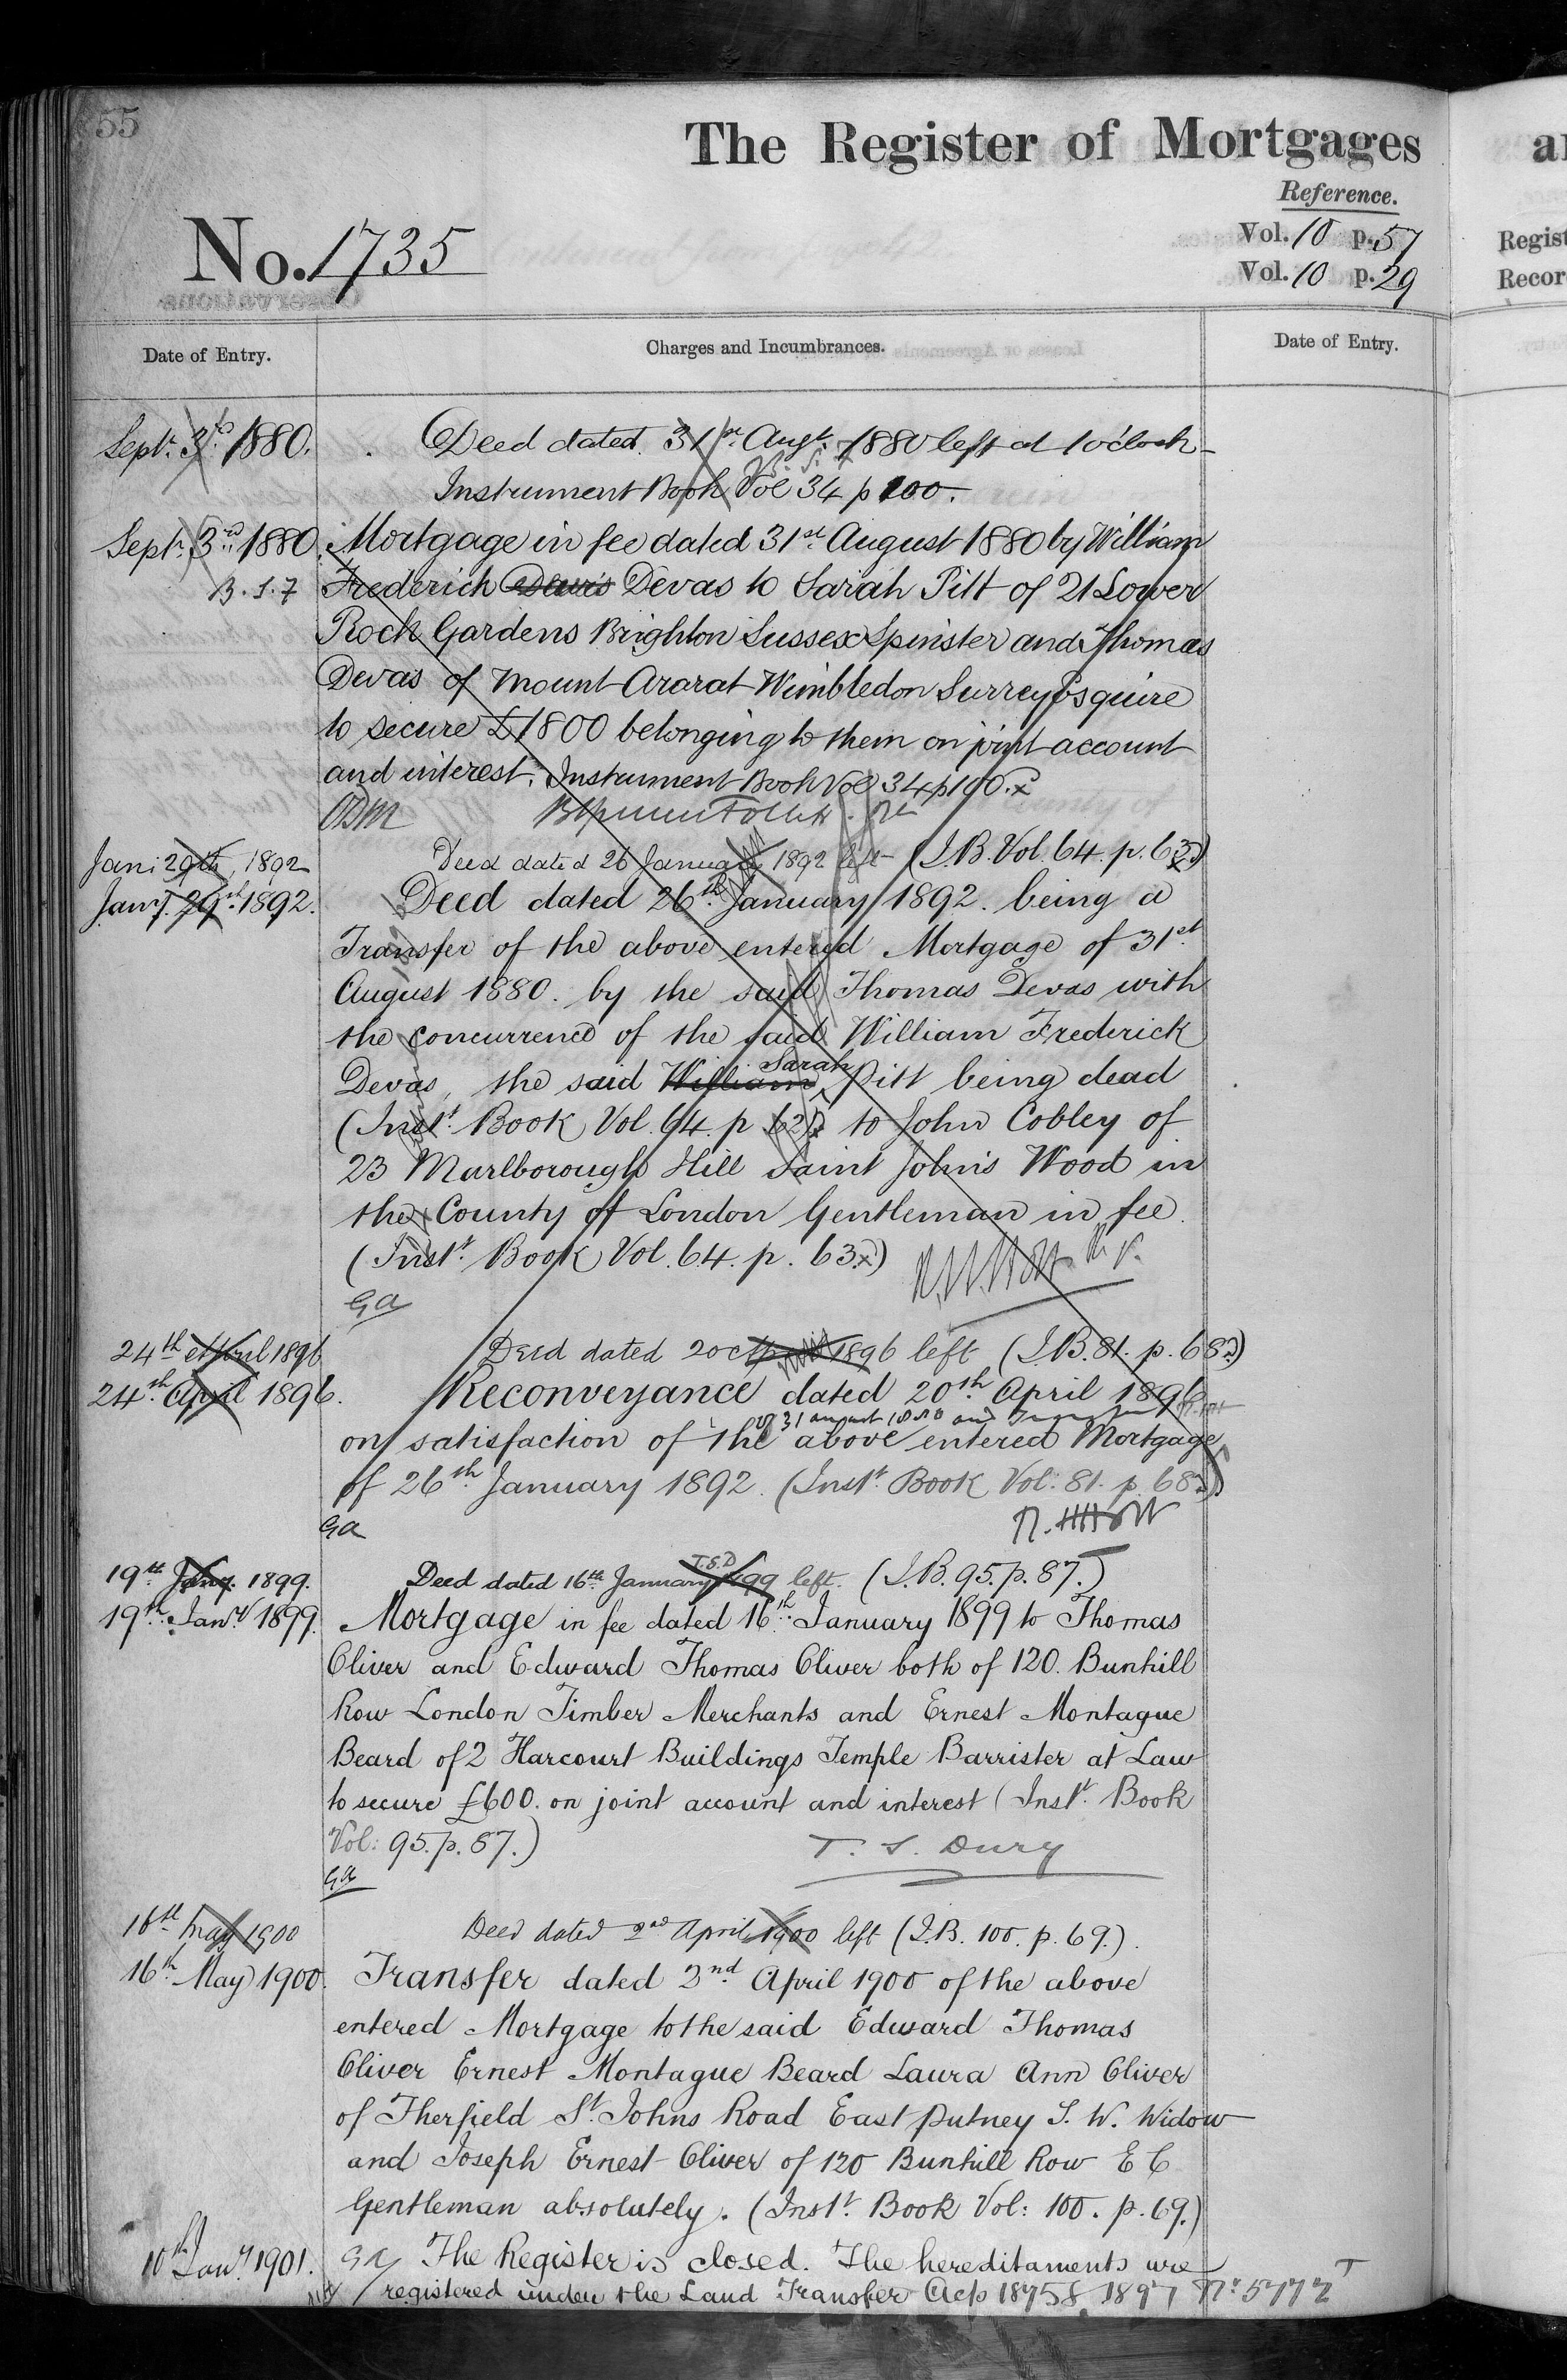 55
The Register of Mortgages
Reference.
No. 1735
Vol. 10 p. 57
Vol. 10 p. 29
Regist
Recor
Date of Entry.
Charges and Incumbrances.
Date of Entry.
Sept. 3rd 1880. Deed dated 31st Augt. 1880 left at 1 o'clock
Instrument Book Vol 34 p 100.
Sept. 3rd 1880. Mortgage in fee dated 31st August 1880 by William
B. 1. 7 Frederick Davis Devas to Sarah Pitt of 21 Lower
Rock Gardens Brighton Sussex Spinster and Thomas
Devas of Mount Ararat Wimbledon Surrey Esquire
to secure £1800 belonging to them on joint account
and interest. Instrument Book Vol 34 p 100.
Jan: 29th, 1892 Deed dated 26 January 1892 left (I.B. Vol. 64. p. 63)
Jany. 29th 1892. Deed dated 26th January 1892. being a
Transfer of the above entered Mortgage of 31st
August 1880. by the said Thomas Devas with
the concurrence of the said William Frederick
Devas, the said William Sarah Pitt being dead
(Inst. Book Vol. 64. p. 62) to John Cobley of
23 Marlborough Hill Saint John's Wood in
the County of London Gentleman in fee.
(Inst. Book Vol. 64. p. 63)
GA
24th April 1896 Deed dated 20th April 1896 left (I.B. 81. p. 68)
24th April 1896. Reconveyance dated 20th April 1896
of 31 august 1880 and
on satisfaction of the above entered Mortgage
of 26th January 1892. (Inst. Book Vol: 81. p. 68)
GA
T.S.D
19th Jany. 1899. Deed dated 16th January 1899 left. (I.B. 95. p. 87.)
19th Jany 1899. Mortgage in fee dated 16th January 1899 to Thomas
Oliver and Edward Thomas Oliver both of 120. Bunhill
Row London Timber Merchants and Ernest Montague
Beard of 2 Harcourt Buildings Temple Barrister at Law
to secure £600. on joint account and interest (Inst. Book
Vol: 95. p. 87.) T. S. Dury
GA
16th May 1900 Deed dated 2nd April 1900 left (I.B. 100. p. 69.).
16th May 1900. Transfer dated 2nd April 1900 of the above
entered Mortgage to the said Edward Thomas
Oliver Ernest Montague Beard Laura Ann Oliver
of Therfield St. Johns Road East Putney S. W. Widow
and Joseph Ernest Oliver of 120 Bunhill Row E C
Gentleman absolutely. (Inst. Book Vol: 100. p. 69.)
10th Jany 1901. GA The Register is closed. The hereditaments are
registered under the Land Transfer Acts 1875 & 1897